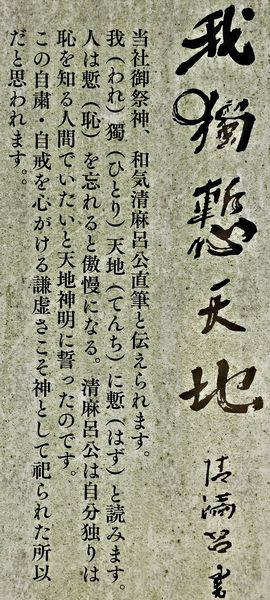 我獨慙天地
清麻呂書
当社御祭神、和気清麻呂公直筆と伝えられます。
我(われ)獨(ひとり)天地(てんち)に慙(はず)と読みます。
人は慙(恥)を忘れると傲慢になる。清麻呂公は自分独りは
恥を知る人間でいたいと天地神明に誓ったのです。
この自粛・自戒を心がける謙虚さこそ神として祀られた所以
だと思われます。。